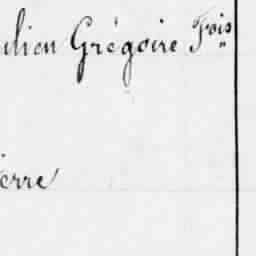 ulien Grégoire Fois
ierre